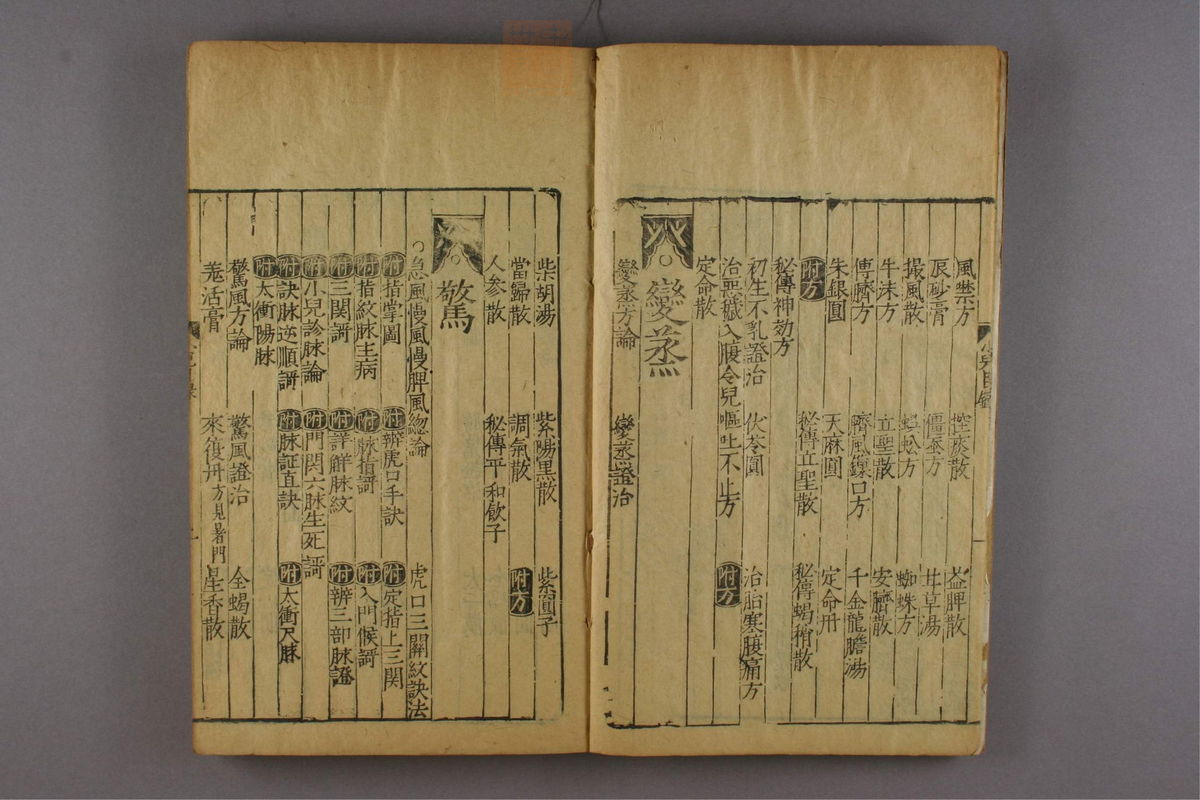 風禁方 控痰散 益脾散
辰砂膏 僵蚕方 甘草湯
撮風散 蜈蚣方 蜘蛛方
牛沫方 立聖散 安臍散
傅臍方 臍風鎖口方 千金龍膽湯
朱銀圓 天麻圓 定命丹
附方 秘傳立聖散 秘傳蝎稍散
秘傳神効方
初生不乳證治 伏苓圓 治胎寒腹痛方
治惡穢入腹令兒嘔吐不止方 附方
定命散
變蒸
變蒸方論 變蒸證治
柴胡湯 紫陽黑散 紫圓子
當歸散 調氣散 附方
人參散 秘傳平和飲子
驚
○急風慢風慢脾風總論 虎口三關紋訣法
附指掌圖 附辨虎口手訣 附定指上三関
附指紋脉主病 附脉指謌 附入門候謌
附三関謌 附詳觧脉紋 附辨三部脉證
附小兒診脉論 附門関六脉生死謌
附訣脉逆順謌 附脉証直訣 附太衝尺脉
附太衝陽脉
驚風方論 驚風證治 全蝎散
羗活膏 來復丹方見暑門 星香散